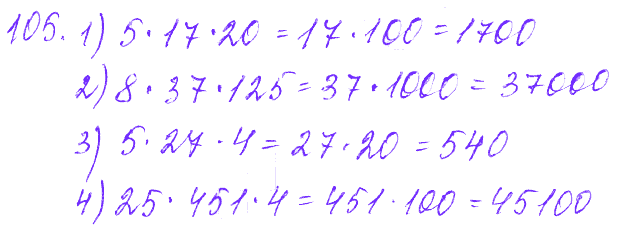 105. 1) 5·17·20 = 17·100 = 1700
2) 8·37·125 = 37·1000 = 37000
3) 5·27·4 = 27·20 = 540
4) 25·451·4 = 451·100 = 45100